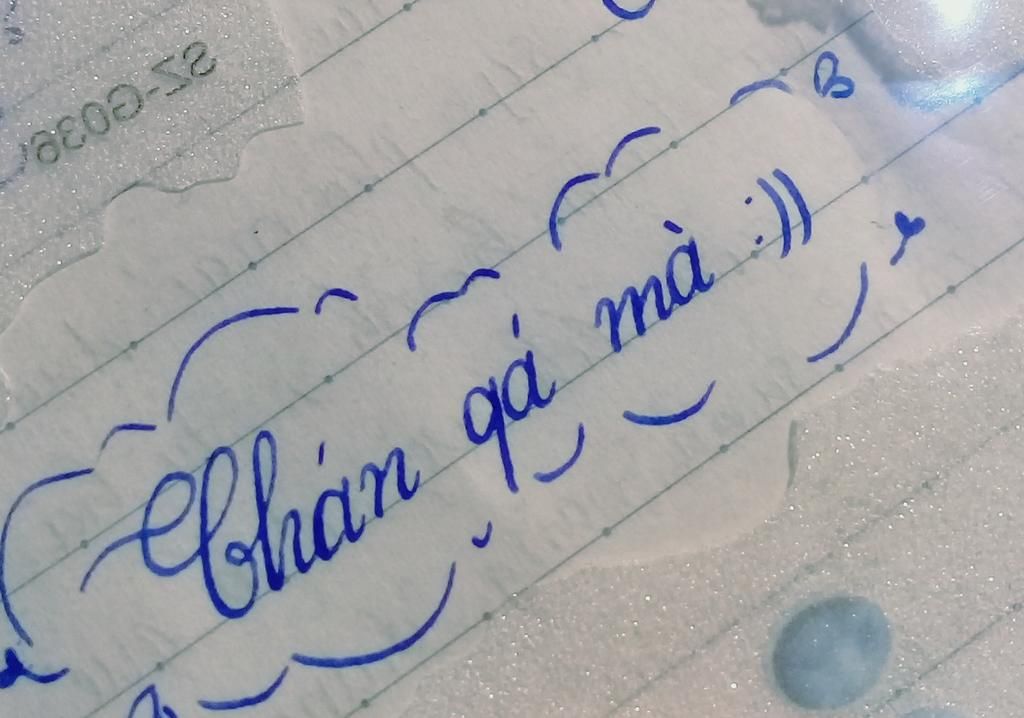 SZ-G036
B
Chán qá mà :))